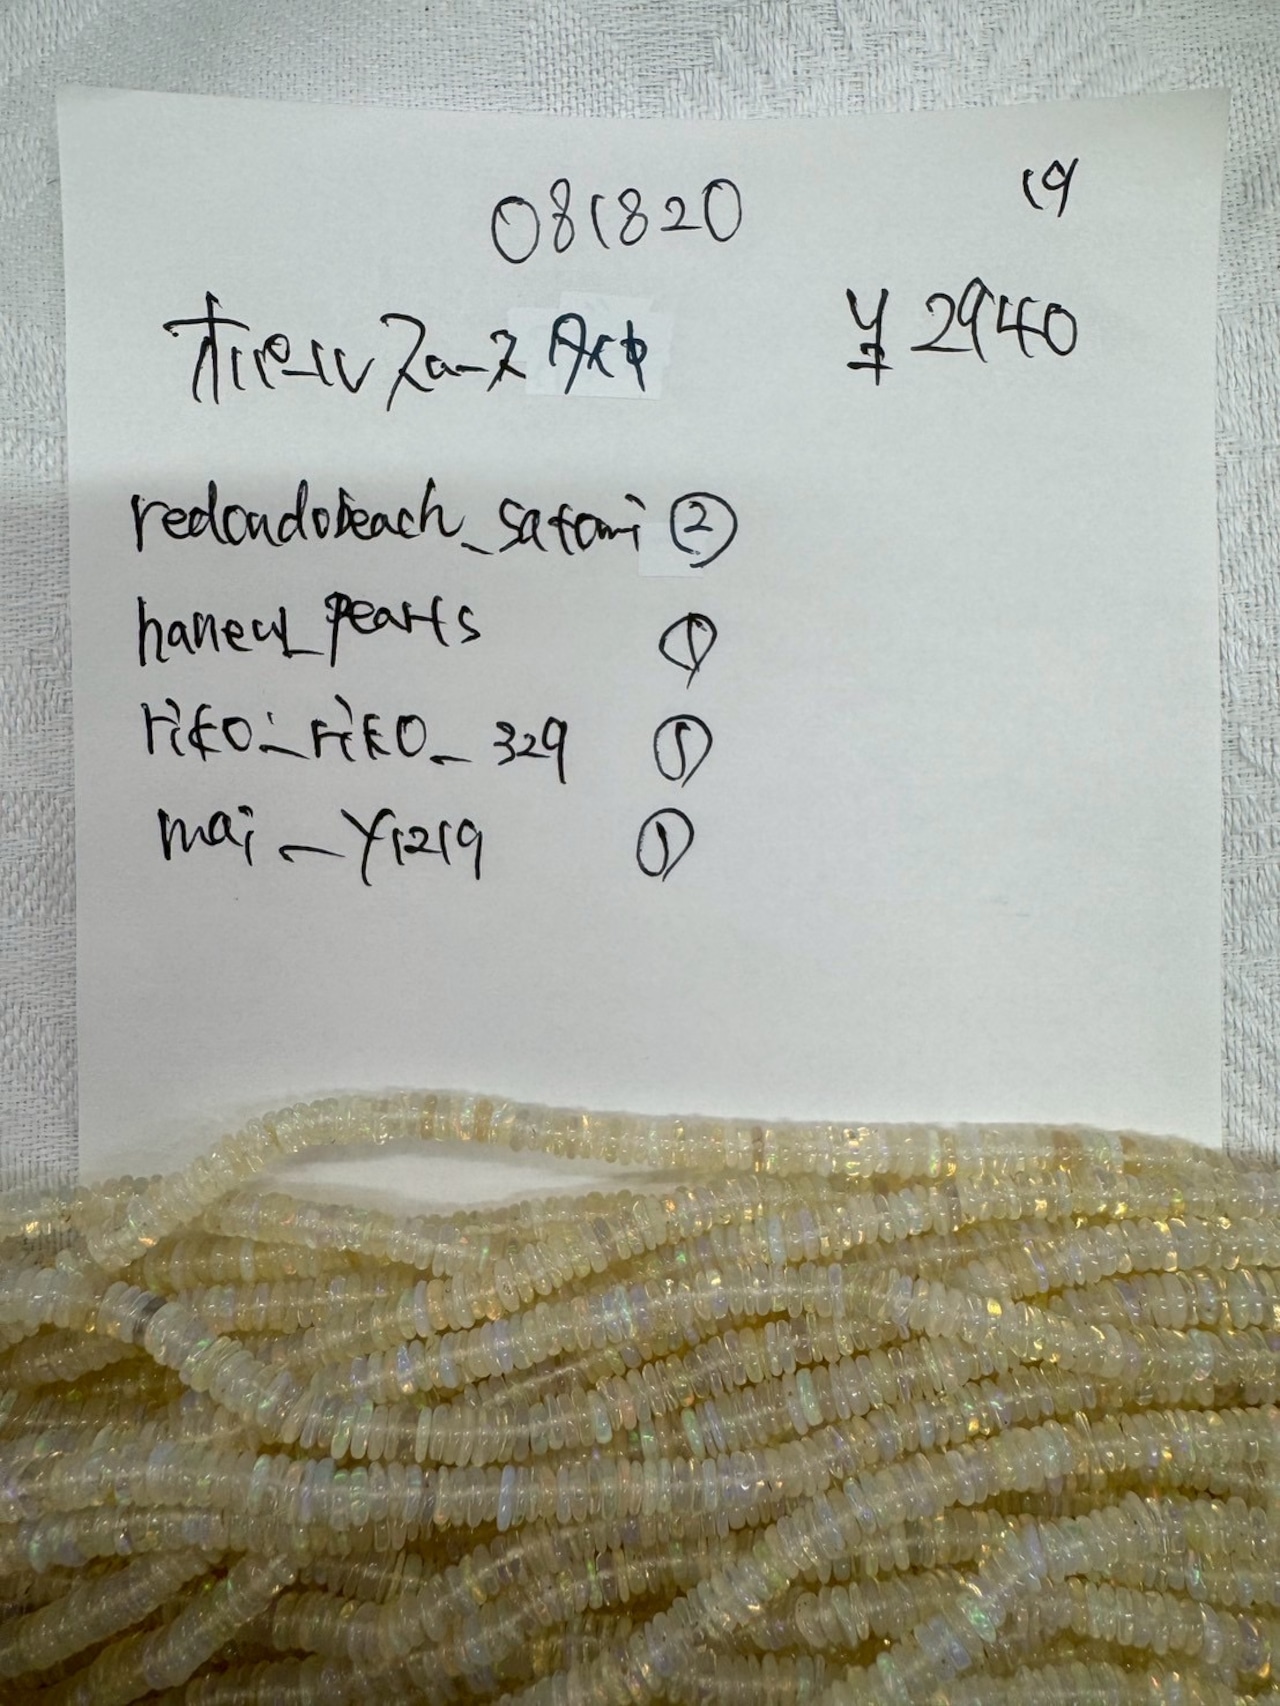 081820 19
オパール スムース ¥2940
redondobeach_satomi ②
haneul_pearls ①
riko_riko_329 ⑤
mai_y1219 ①